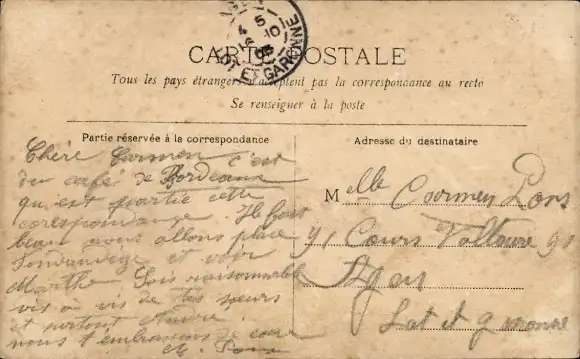 4 5
16-10
05
LOT ET GARONNE
CARTE POSTALE
Tous les pays étrangers n'acceptent pas la correspondance au recto
Se renseigner à la poste
Partie réservée à la correspondance
Adresse du destinataire
Chère Carmen c'est
du café de Bordeaux
qui est partie cette
corespondange. Il fait
beau nous allons place
et voir
Marthe. Sois raisonnable
vis à vis de tes sœurs
et surtout
nous t'embrassons de cœur
Melle Carmen Pons
91 Cours Voltaire 91
Agen
Lot et garonne